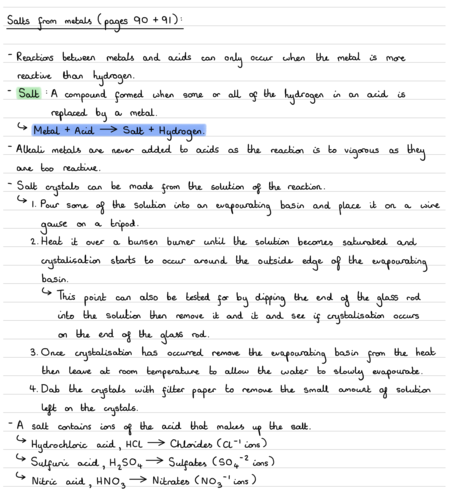 Salts from metals (pages 90 + 91):
- Reactions between metals and acids can only occur when the metal is more
reactive than hydrogen.
- Salt : A compound formed when some or all of the hydrogen in an acid is
replaced by a metal.
↳ Metal + Acid → Salt + Hydrogen.
- Alkali metals are never added to acids as the reaction is to vigorous as they
are too reactive.
- Salt crystals can be made from the solution of the reaction.
↳ 1. Pour some of the solution into an evapourating basin and place it on a wire
gauze on a tripod.
2. Heat it over a bunsen burner until the solution becomes saturated and
crystalisation starts to occur around the outside edge of the evapourating
basin.
↳ This point can also be tested for by dipping the end of the glass rod
into the solution then remove it and it and see if crystalisation occurs
on the end of the glass rod.
3. Once crystalisation has occurred remove the evapourating basin from the heat
then leave at room temperature to allow the water to slowly evapourate.
4. Dab the crystals with filter paper to remove the small amount of solution
left on the crystals.
- A salt contains ions of the acid that makes up the salt.
↳ Hydrochloric acid, HCL → Chlorides (CL⁻¹ ions)
↳ Sulfuric acid, H₂SO₄ → Sulfates (SO₄⁻² ions)
↳ Nitric acid, HNO₃ → Nitrates (NO₃⁻¹ ions)